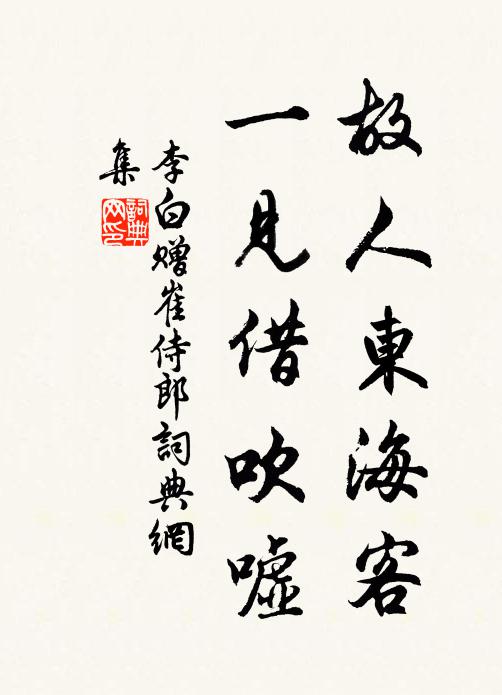 故人東海客
一見借吹嘘
李白赠崔侍郎詞典網
集
詞典
网印